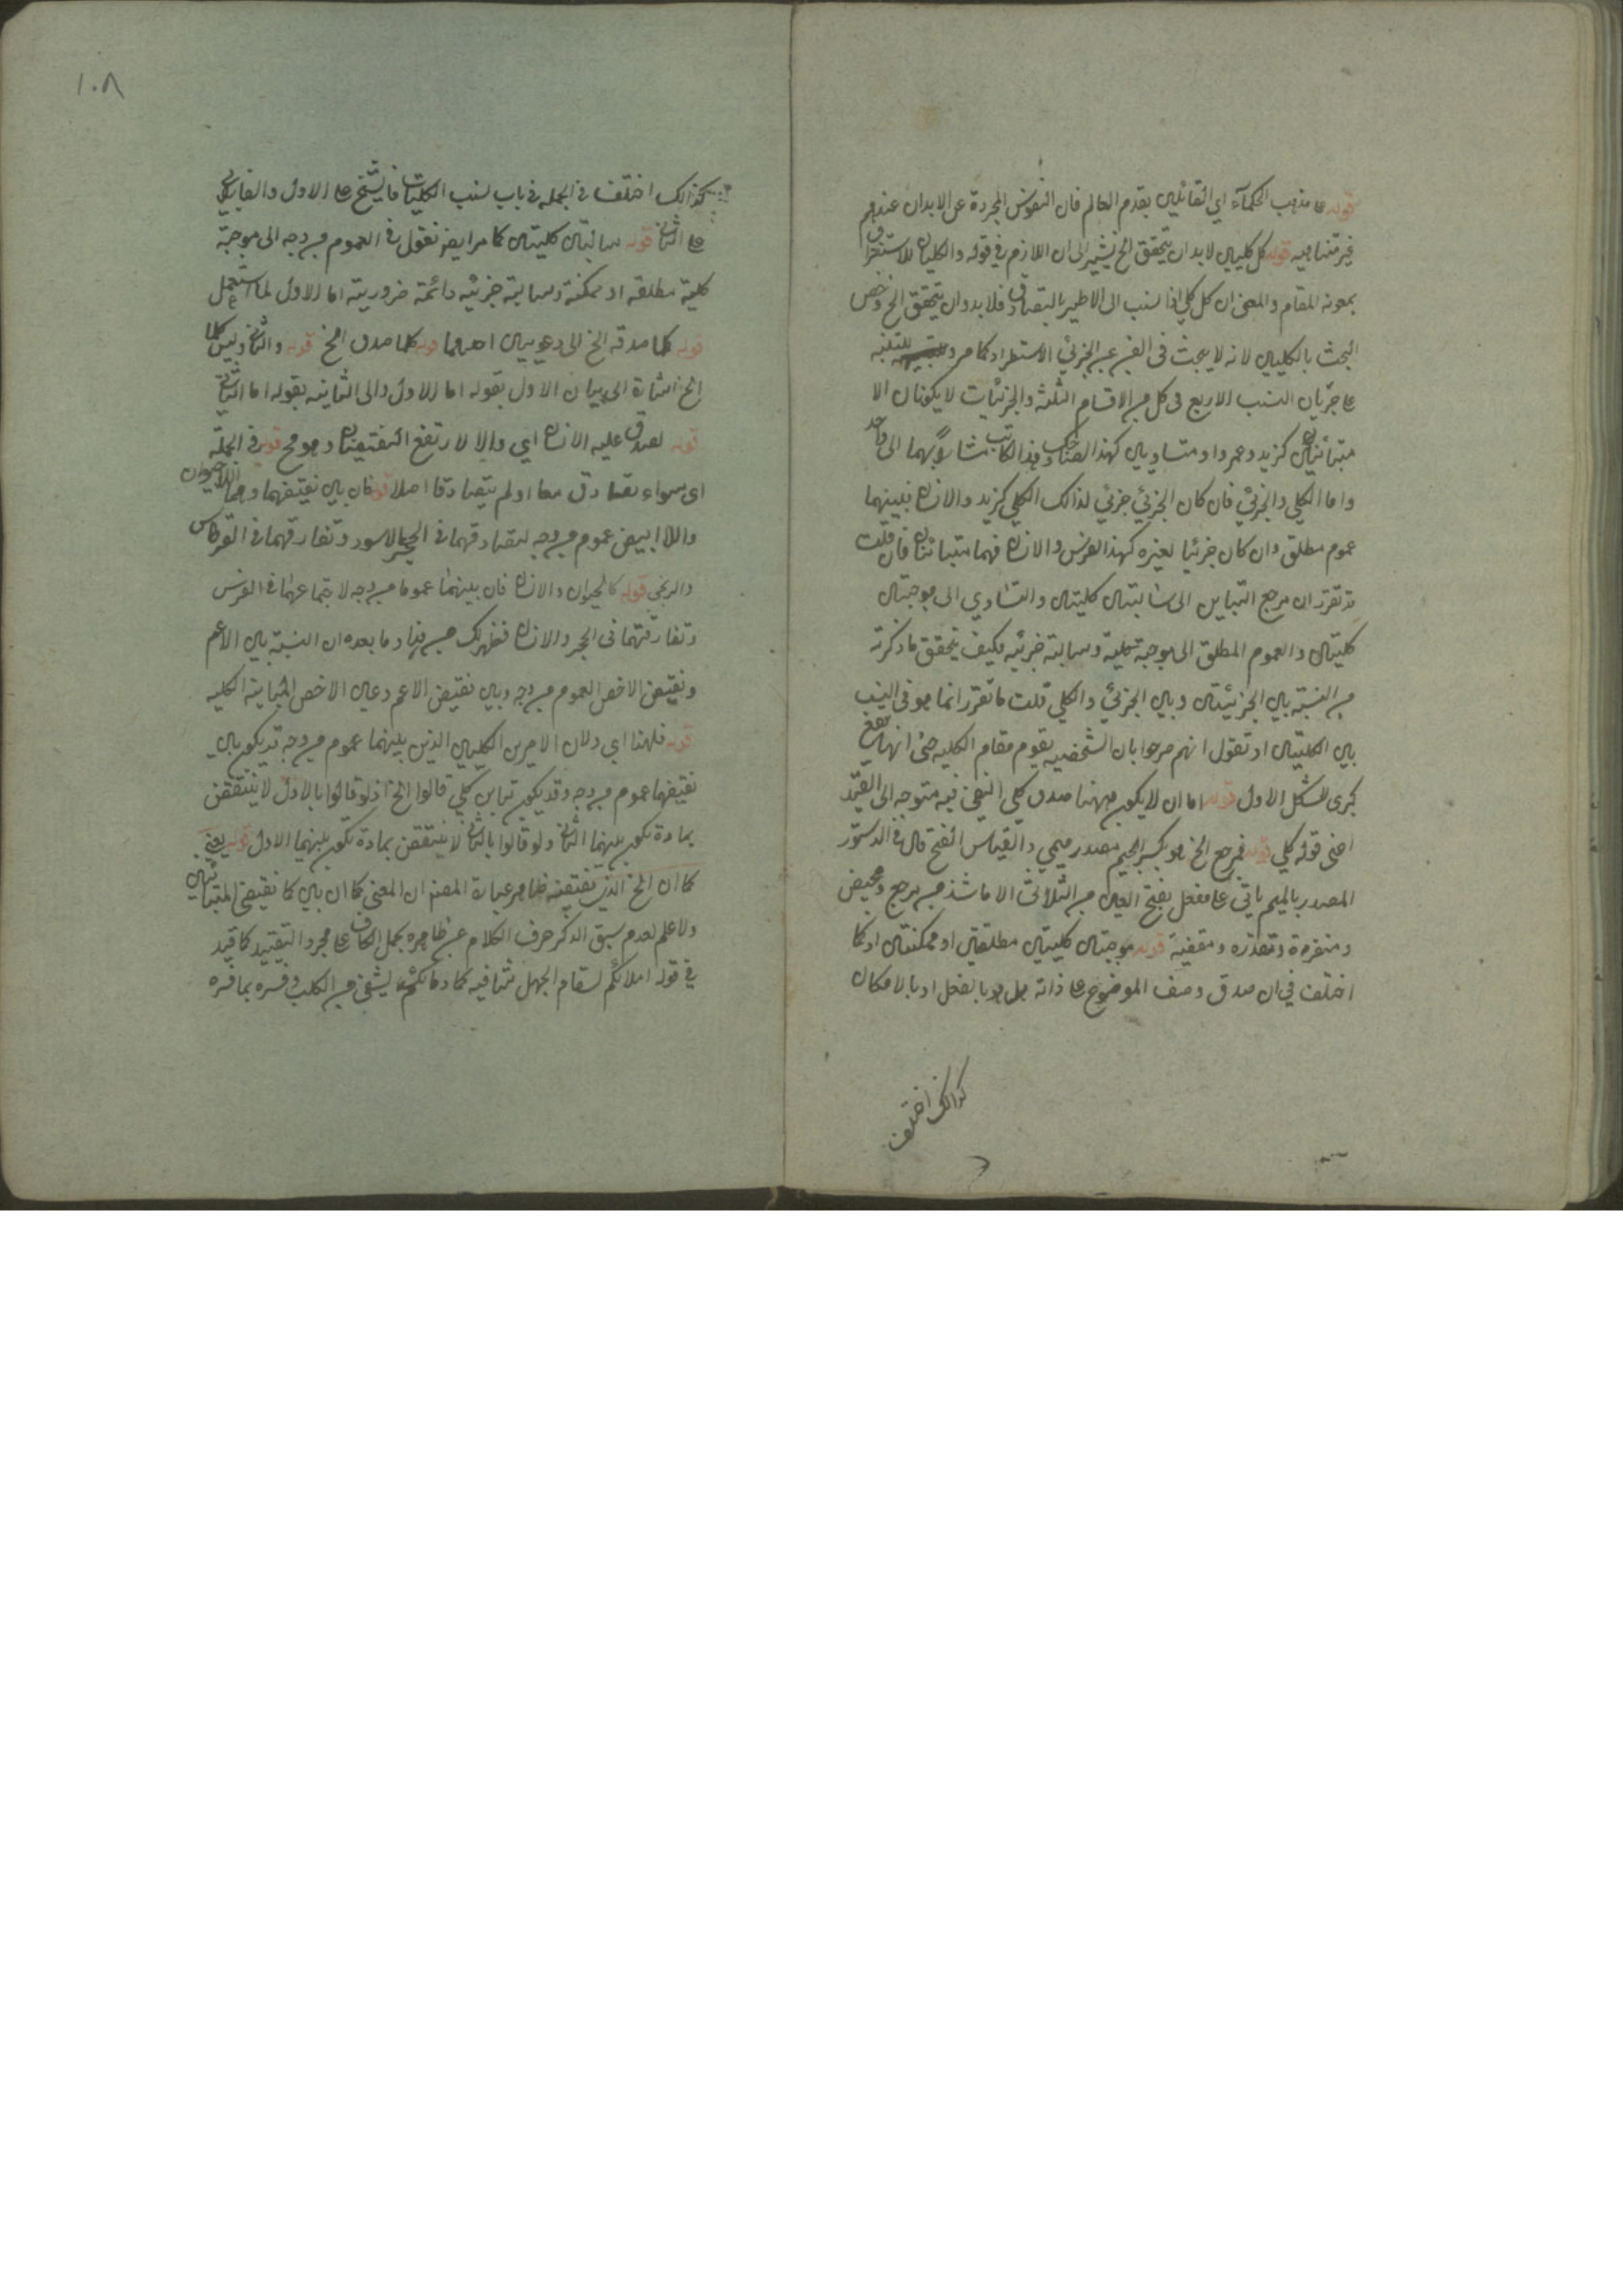 قوله على مذهب الحكمآء اي القائلين بقدم العالم فان النفوس المجردة عن الابدان عندهم
غير متناهيه قوله كل كليين لابد ان يتحقق الخ يشير الى ان اللازم في قوله والكليان للاستغراق
بمعونة المقام والمعنى ان كل كلي اذا نسب الى الاخر بالتصادق فلابد وان يتحقق الخ وخص
البحث بالكليين لانه لا يبحث في الفن عن الجزئي الا استطرادا كما مر وللتنبيه
على جريان النسب الاربع في كل من الاقسام الثلثة والجزئيات لا يكونان الا
متبائنين كزيد وعمرو او متساويين كهذا الضاحك وهذا الكاتب مشارًا بهما الى واحد
واما الكلي والجزئي فان كان الجزئي جزئي لذالك الكلي كزيد والانسان فبينهما
عموم مطلق وان كان جزئيا لغيره كهذا الفرس والانسان فهما متبائنان فان قلت
قد تقرر ان مرجع التباين الى سالبتين كليتين والتساوي الى موجبتين
كليتين والعموم المطلق الى موجبة كلية وسالبة جزئيه فكيف يتحقق ما ذكرته
من النسبة بين الجزئيتين وبين الجزئي والكلي قلت ما تقرر انما هو في النسب
بين الكليتين او تقول انهم صرحوا بان الشخصيه يقوم مقام الكليه حتى انها تقع
كبرى للشكل الاول قوله اما ان لا يكون ههنا صدق كلي النفي فيه متوجه الى القيد
اعني قوله كلي قوله فمرجع الخ هو بكسر الجيم مصدر ميمي والقياس الفتح قال في الدستور
المصدر بالميم ياتي على مفعل بفتح العين من الثلاثي الا ما شذ من مرجع ومحيض
ومغفرة ومقدرة ومعصية قوله موجبتين كليتين مطلقتين او ممكنتين او كما
اختلف في ان صدق وصف الموضوع على ذاته هل هو بالفعل او بالامكان
كذالك اختلف
١٠٨
كذالك اختلف في الجملة في باب نسب الكليات فالشيخ على الاول والفارابي
على الثاني قوله سالبتين كليتين كما مر ايضا نقول في العموم من وجه الى موجبة
كلية مطلقه او ممكنة وسالبة جزئيه دائمة ضرورية اما الاول لما استعمل
قوله كلما صدقه الخ الى دعويين احدهما قوله كلما صدق الخ قوله والثاني وليس كلما
الخ اشارة الى بيان الاول بقوله اما الاول والى الثانيه بقوله اما الثاني
قوله لصدق عليه الانسان اي والا لارتفع النقيضان وهو مح قوله في الجملة
اى سواء تصادق معا او لم يتصادقا اصلا قوله فان بين نقيضهما وهما اللاحيوان
واللاابيض عموم من وجه لتصادقهما في الحجر الاسود وتفارقهما في القرطاس
والزنجي قوله كالحيوان واللاانسان فان بينهما عموما من وجه لاجتماعهما في الفرس
وتفارقهما في الحجر والانسان فظهر لك من هذا وما بعده ان النسبة بين الاعم
ونقيض الاخص العموم من وجه وبين نقيض الاعم وعين الاخص المباينة الكليه
قوله فلهذا اي ولان الامرين الكليين الذين بينهما عموم من وجه قد يكون بين
نقيضهما عموم من وجه وقد يكون تباين كلي قالوا الخ اذ لو قالوا بالاول لا ينتقض
بمادة يكون بينهما الثاني ولو قالوا بالثاني لا ينتقض بمادة تكون بينهما الاول قوله يعني
كما ان الخ الذي يقتضيه ظاهر عبارة المصنف ان المعنى كما ان بين كما نقيضي المتبائنين
ولا علم لعدم سبق الذكر صرف الكلام عن ظاهره بحمل الكاف على مجرد التقييد كما قيد
في قوله احلامكم لسقام الجهل شافيه كما دمائكم يشفى من الكلب وفسره بما فسره